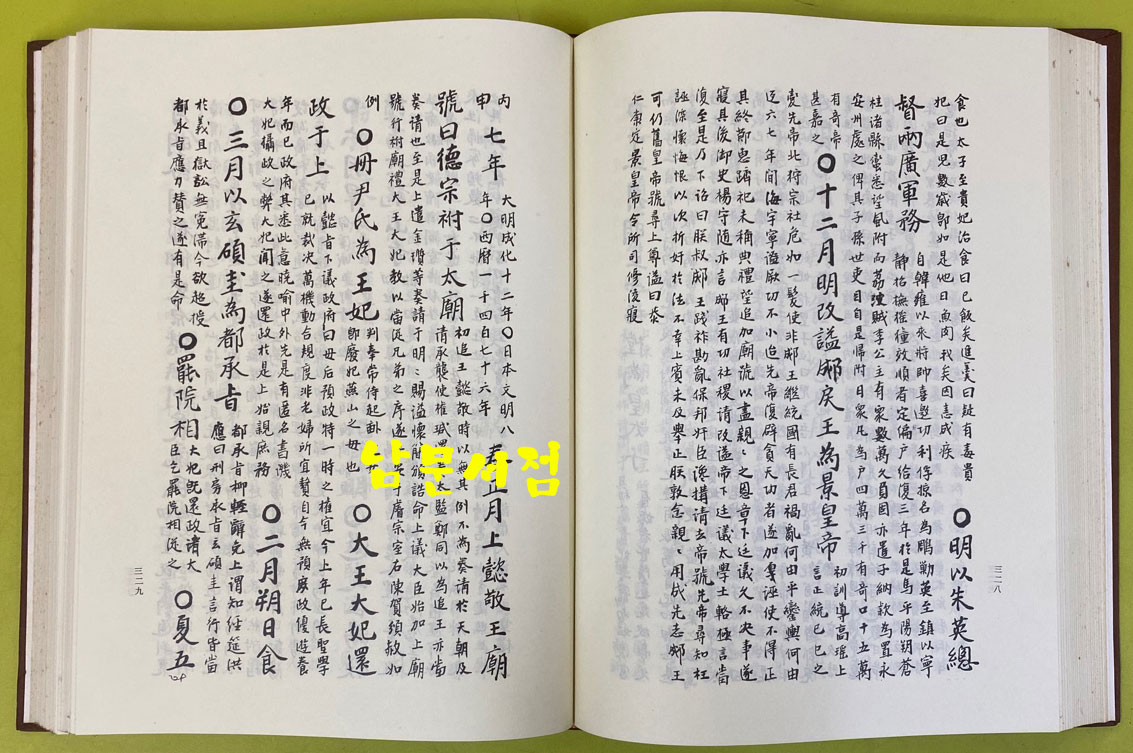 食也太子至貴妃治食曰已飮矣進羹曰疑有毒貴
妃曰是兒數歲卽如是他日魚肉我矣因恚成疾
〇明以朱英總
督兩廣軍務
自韓雍以來將帥喜邀功利俘掠名爲鵰勦英至鎭以寧
靜招撫猺獞效順者定編戶給復三年於是馬平陽朔蒼
諸縣蠻悉望風附向荔賊李公主有衆數萬久負固亦遣子納款爲置永
安州處之俾其子孫世吏目自是歸附日衆凡爲戶四萬三千有奇口十五萬
有奇帝
甚嘉之
〇十二月明改諡郕戾王爲景皇帝
初訓導高瑤上
言正統己巳之
變先帝北狩宗社危如一髮使非郕王繼統國有長君禍亂何由平鑾輿何由
返六七年間海宇寧謐厥功不小迨先帝復辟貪天功者遂加誣使不得正
其終節惠隮祀未稱典禮望追加廟號以盡親〻之恩章下廷議久不決事遂
寢其後御史楊守隨亦言郕王有功社稷請改諡帝下廷議太學士輅極言當
復至是乃下詔曰朕叔郕王踐祚勘亂保邦奸臣讒搆請去帝號先帝尋知枉
誣深懷悔恨以次抵奸於法不幸上賓未及擧正朕敦念親〻用成先志郕王
可仍舊皇帝號尋上尊諡曰恭
仁康定景皇帝令所司修陵寢
三二八
丙
申
七年
大明成化十二年〇日本文明八
年〇西曆一千四百七十六年
春正月上懿敬王廟
號曰德宗祔于太廟
初追王懿敬時以無其例不爲奏請於天朝及
請承襲使權瑊還太監鄭同以爲追王亦當
奏請也至是上遣金礩等奏請于明〻賜諡懷簡頒誥命上議大臣始加上廟
號行祔廟禮大王大妃敎以當從兄弟之序遂于睿宗室右陳賀頒赦如
例
〇冊尹氏爲王妃
判奉常寺起畝女
卽廢妃燕山之母也
〇大王大妃還
政于上
以懿旨下議政府曰母后預政特一時之權宜今上年已長聖學
已就裁決萬機動合規度非老婦所宜贅自今無預庶政優遊養
年而已政府其悉此意曉喩中外先是有匿名書譏
大妃攝政之弊大妃聞之遂還政於是上始親庶務
〇二月朔日食
〇三月以玄碩圭爲都承旨
都承旨柳輊辭免上謂知經筵洪
應曰刑房承旨玄碩圭言行皆當
於義且獄訟無冤滯今欲超授
都承旨應力贊之遂有是命
〇罷院相
大妃旣還政諸大
臣乞罷院相從之
〇夏五
三二九
남문서점